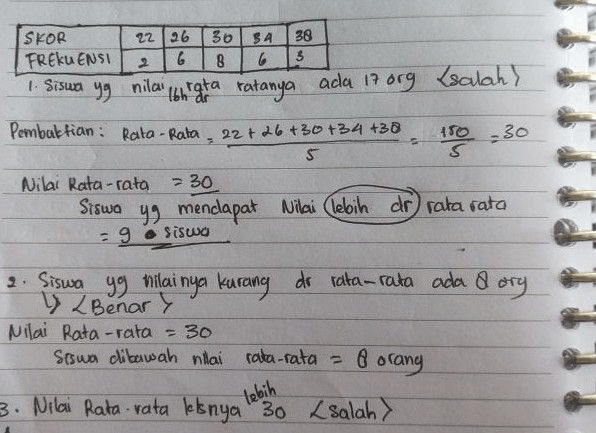 SKOR 22 26 30 34 38
FREKUENSI 2 6 8 6 3
1. Siswa yg nilai lbh dr rata ratanya ada 17 org <salah>
Pembuktian: Rata-Rata = 22 + 26 + 30 + 34 + 38 / 5 = 150 / 5 = 30
Nilai Rata-rata = 30
Siswa yg mendapat Nilai lebih dr rata rata
= 9 siswa
2. Siswa yg nilainya kurang dr rata-rata ada 8 org
↳ <Benar>
Nilai Rata-rata = 30
Siswa dibawah nilai rata-rata = 8 orang
3. Nilai Rata-rata klsnya lebih 30 <salah>